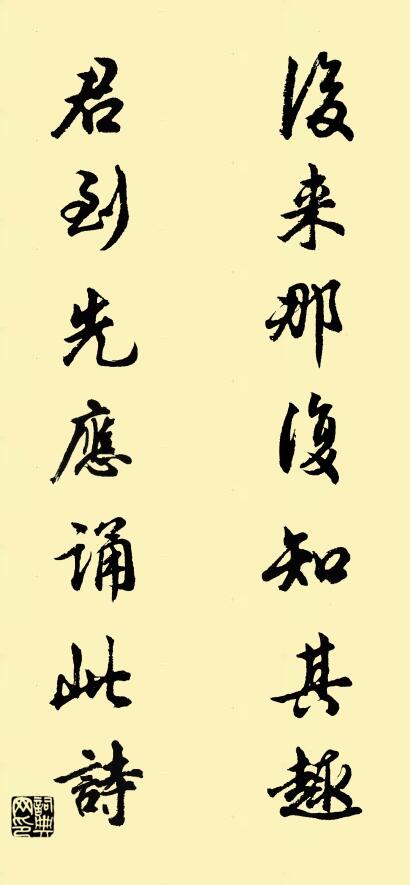 後来那復知其趣
君到先應誦此詩
詞典网印